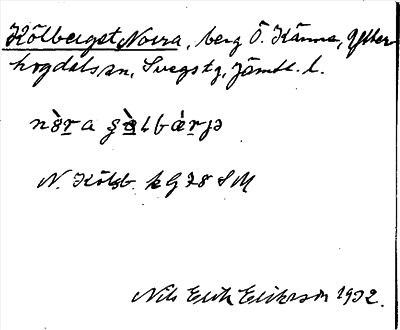 Kölberget Norra, berg Ö. Känne, Ytter-
hogdals sn, Svegs tg, Jämtl. l.
N. Kölsb. kg 78 SM
Nils Erik Eriksson 1932.